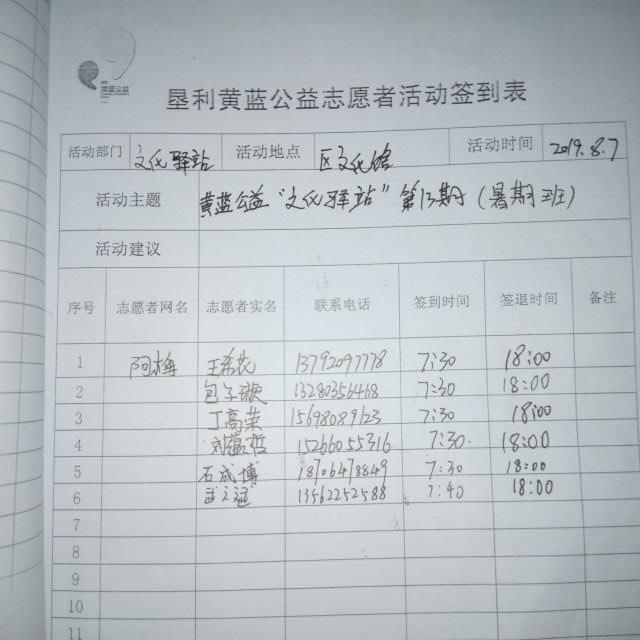 黄蓝公益
垦利黄蓝公益志愿者活动签到表
活动部门 文化驿站 活动地点 区文化馆 活动时间 2019.8.7
活动主题 黄蓝公益“文化驿站”第13期(暑期班)
活动建议
序号 志愿者网名 志愿者实名 联系电话 签到时间 签退时间 备注
1 阿梅 王希花 13792097778 7:30 18:00
2 包 13280356468 7:30 18:00
3 丁高荣 15698089123 7:30 18:00
4 刘蕴哲 15266055316 7:30 18:00
5 石成博 18906498849 7:30 18:00
6 13562252588 7:40 18:00
7
8
9
10
11